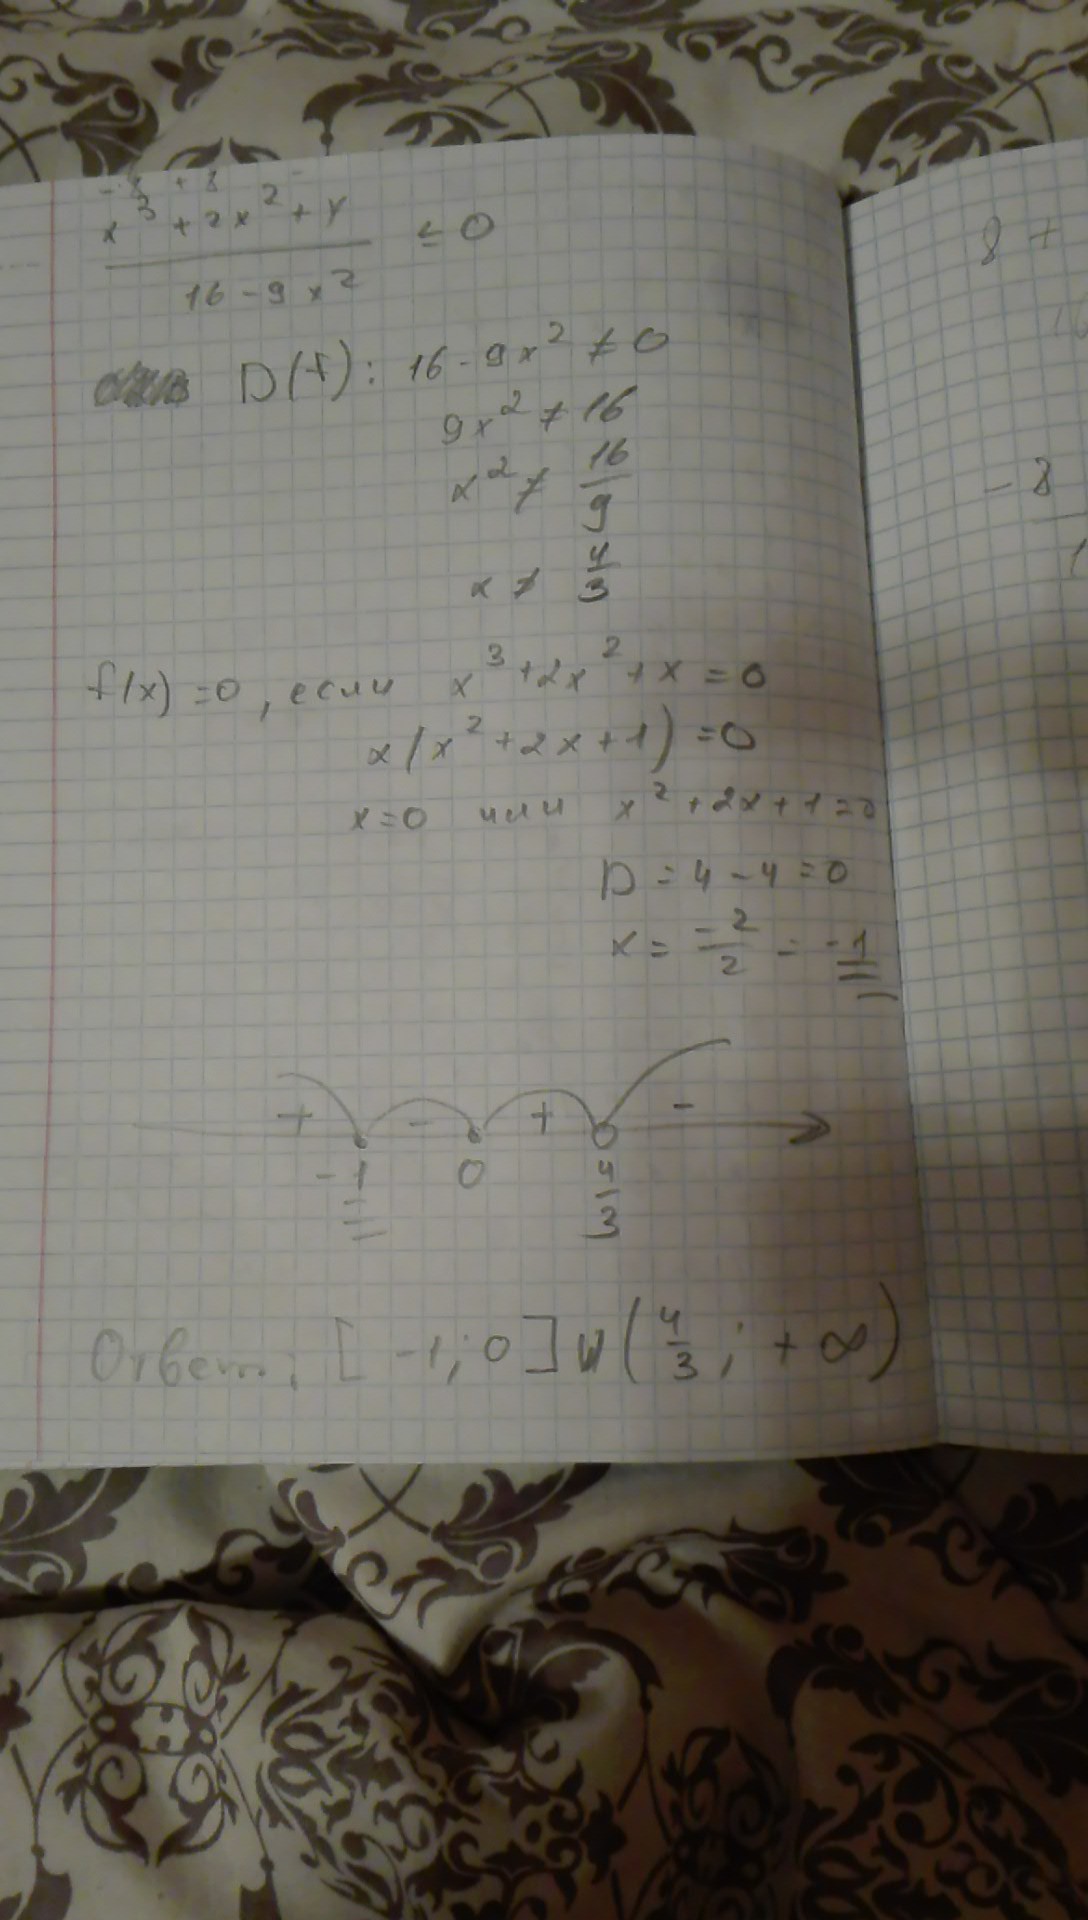 - 8 + 8 -
x³ + 2x² + x / 16 - 9x² ≤ 0
D(f): 16 - 9x² ≠ 0
9x² ≠ 16
x² ≠ 16/9
x ≠ 4/3
f(x) = 0, если x³ + 2x² + x = 0
x(x² + 2x + 1) = 0
x = 0 или x² + 2x + 1 = 0
D = 4 - 4 = 0
x = -2/2 = -1
+ - + -
-1 0 4/3
Ответ: [-1; 0] и (4/3; +∞)
8 +
- 8